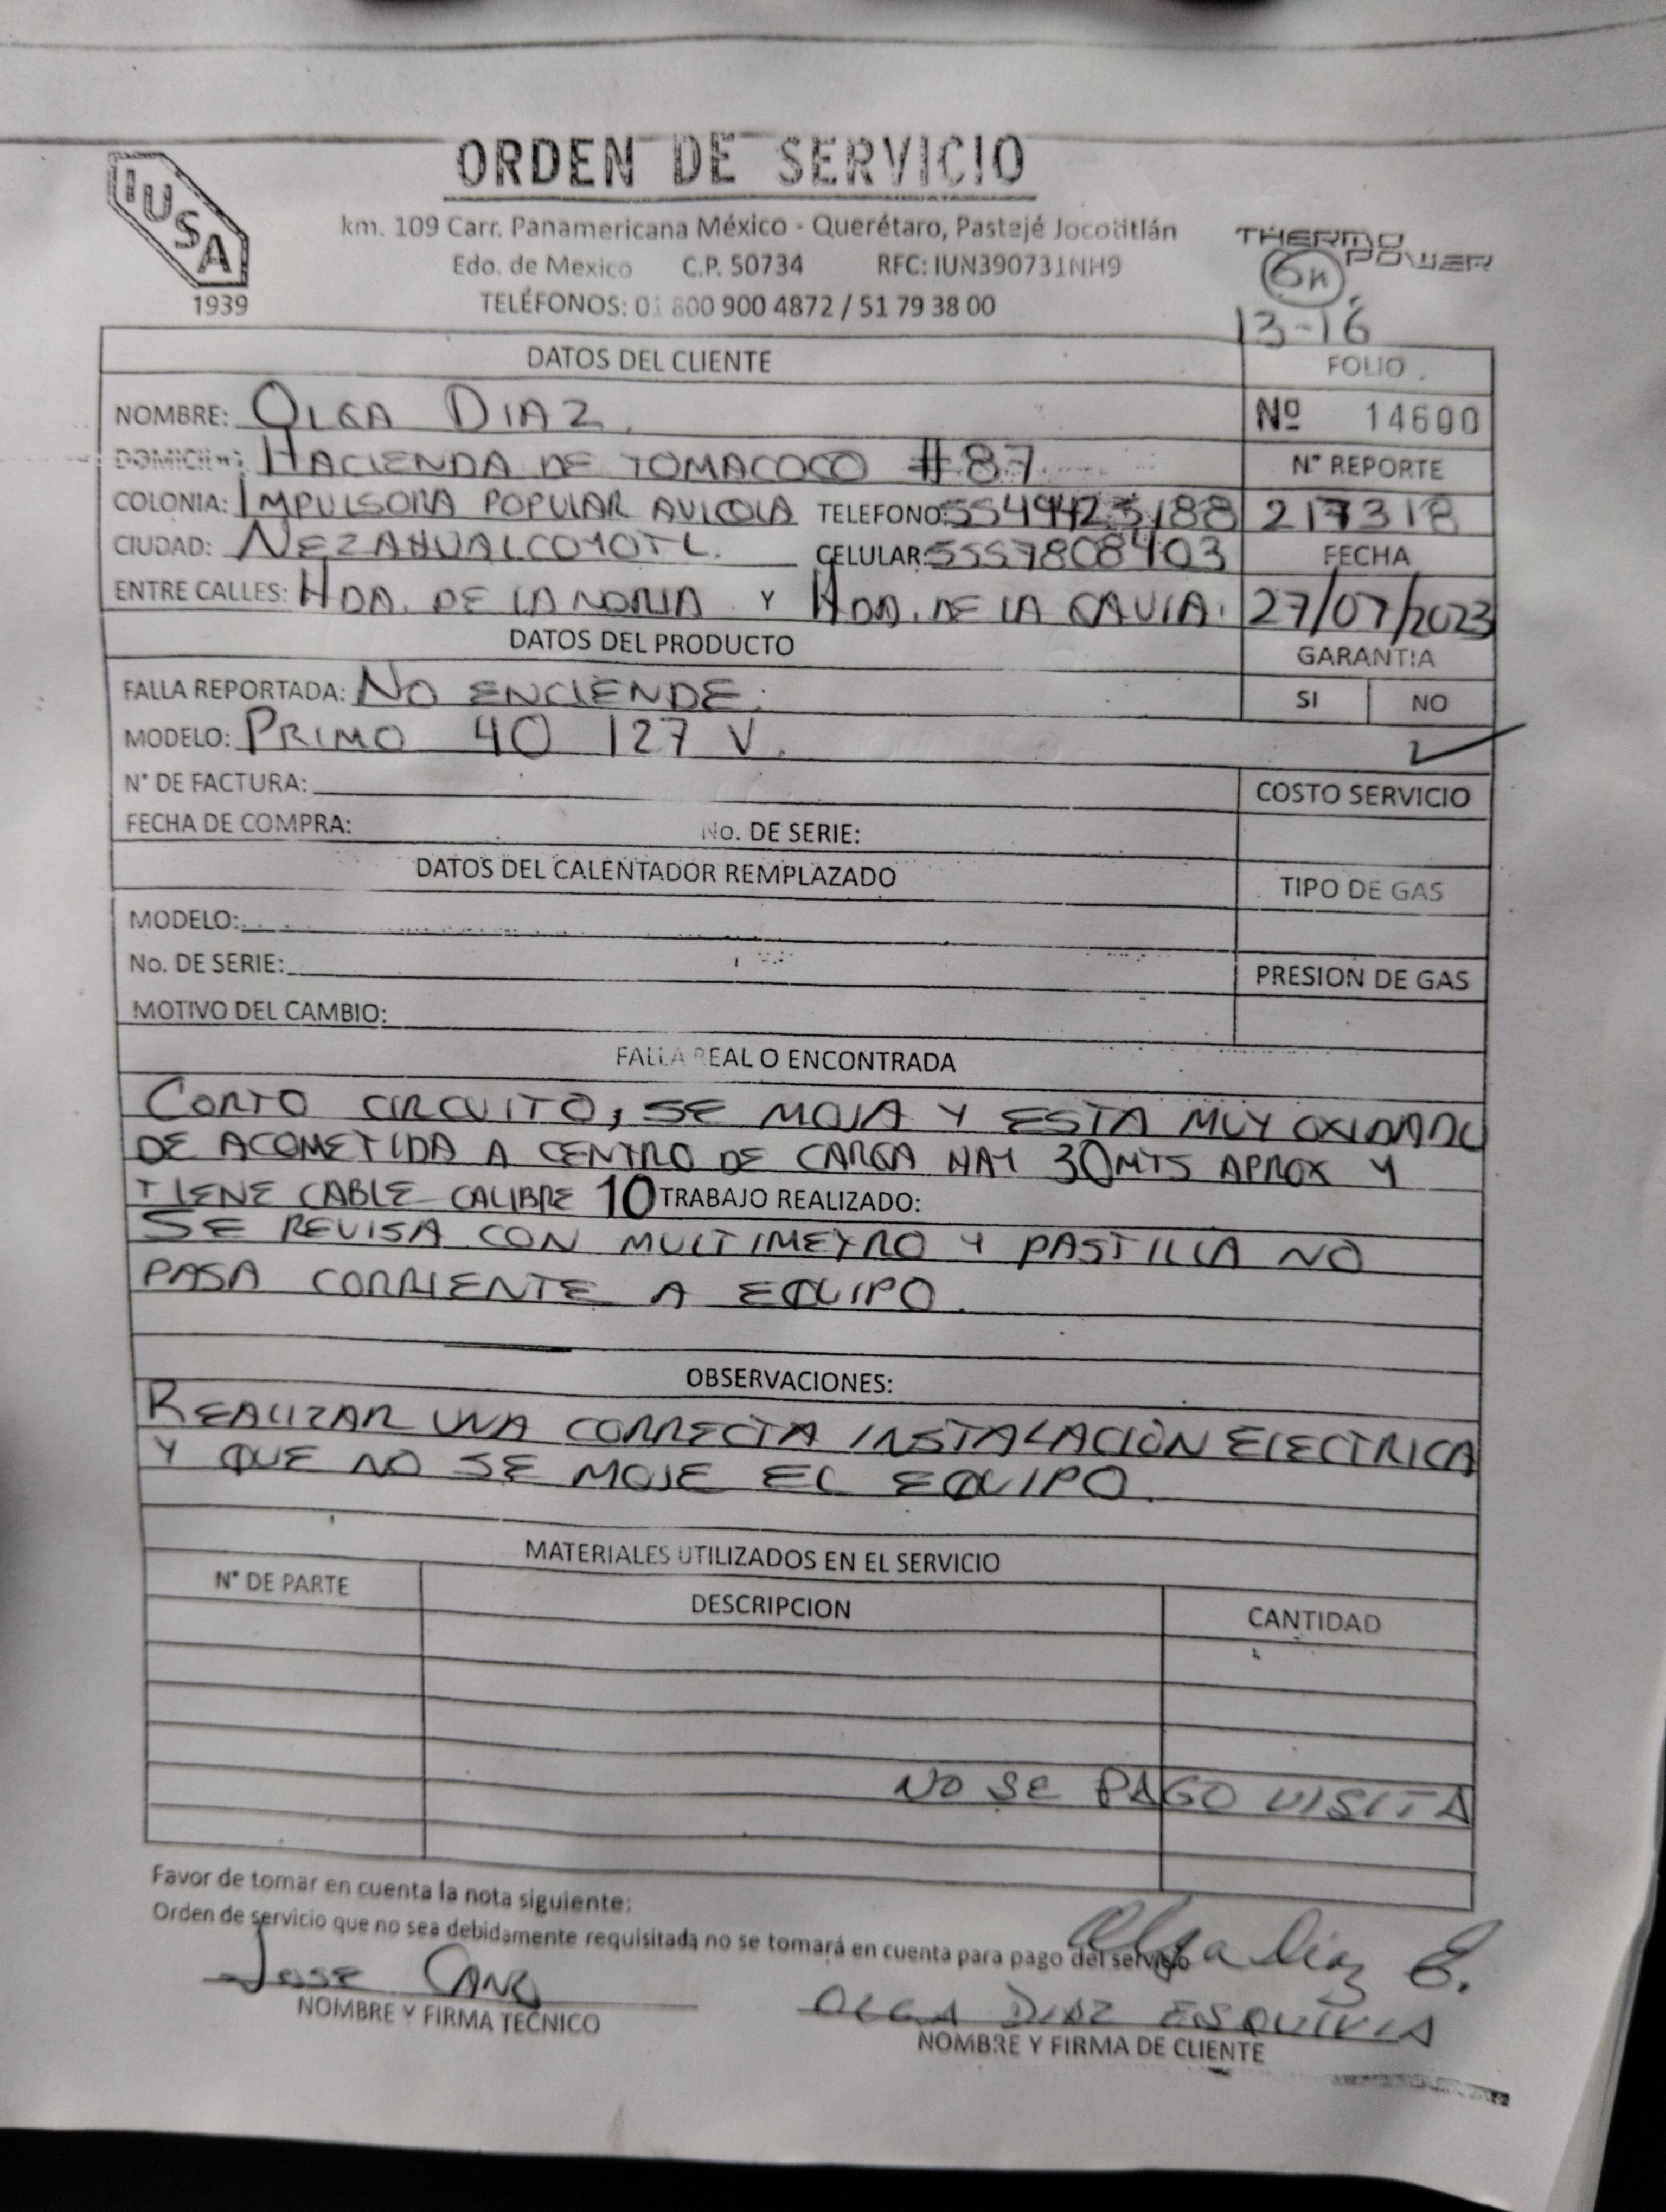 ORDEN DE SERVICIO
IUSA
1939
km. 109 Carr. Panamericana México - Querétaro, Pastejé Jocotitlán
Edo. de Mexico C.P. 50734 RFC: IUN390731NH9
TELÉFONOS: 01 800 900 4872 / 51 79 38 00
THERMO
POWER
13-16
DATOS DEL CLIENTE
FOLIO
NOMBRE: OLGA DIAZ.
Nº 14600
DOMICILIO: HACIENDA DE TOMACOCO #87
N° REPORTE
COLONIA: IMPULSORA POPULAR AVICOLA TELEFONO: 5549423188 217318
CIUDAD: NEZAHUALCOYOTL. CELULAR: 5557808403 FECHA
ENTRE CALLES: HDA. DE LA NORIA Y HDA. DE LA GAVIA. 27/07/2023
DATOS DEL PRODUCTO
GARANTIA
FALLA REPORTADA: NO ENCIENDE.
SI NO
MODELO: PRIMO 40 127 V.
N° DE FACTURA:
COSTO SERVICIO
FECHA DE COMPRA: No. DE SERIE:
DATOS DEL CALENTADOR REMPLAZADO
TIPO DE GAS
MODELO:
No. DE SERIE:
PRESION DE GAS
MOTIVO DEL CAMBIO:
FALLA REAL O ENCONTRADA
CORTO CIRCUITO, SE MOJA Y ESTA MUY OXIDADO
DE ACOMETIDA A CENTRO DE CARGA HAY 30MTS APROX Y
TIENE CABLE CALIBRE 10 TRABAJO REALIZADO:
SE REVISA CON MULTIMETRO Y PASTILLA NO
PASA CORRIENTE A EQUIPO.
OBSERVACIONES:
REALIZAR UNA CORRECTA INSTALACIÓN ELECTRICA
Y QUE NO SE MOJE EL EQUIPO.
MATERIALES UTILIZADOS EN EL SERVICIO
N° DE PARTE DESCRIPCION CANTIDAD
NO SE PAGO VISITA
Favor de tomar en cuenta la nota siguiente:
Orden de servicio que no sea debidamente requisitada no se tomará en cuenta para pago del servicio
Olga Díaz E.
JOSE CANO
OLGA DIAZ ESQUIVIA
NOMBRE Y FIRMA TECNICO
NOMBRE Y FIRMA DE CLIENTE